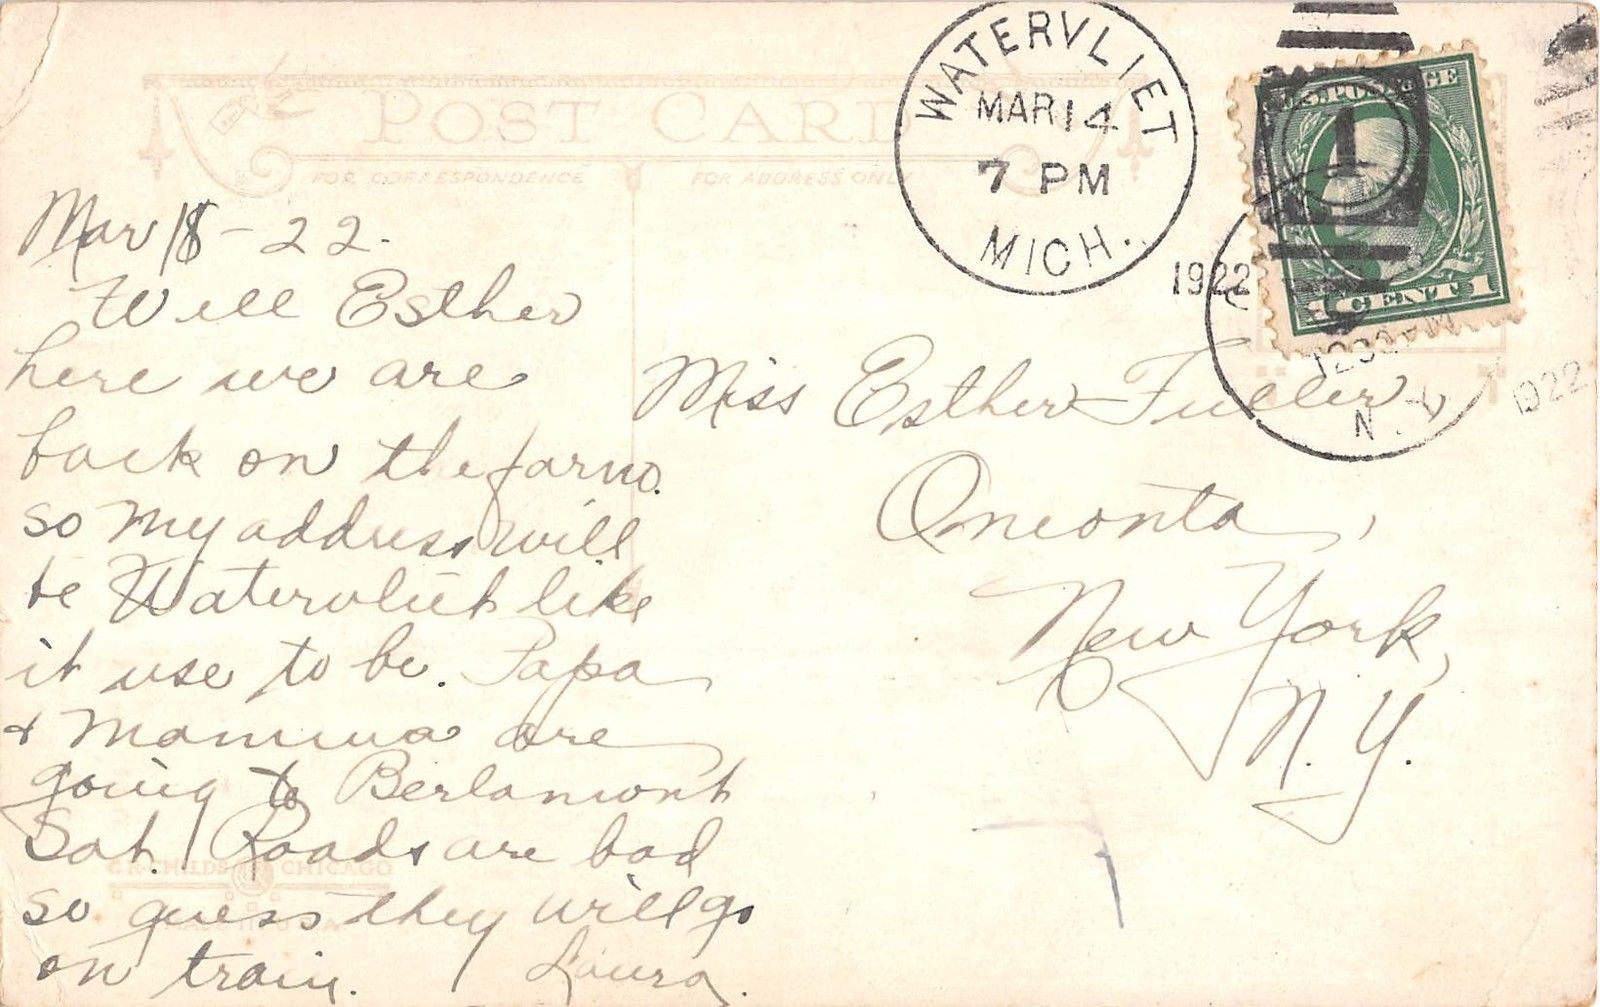 POST CARD
FOR CORRESPONDENCE
FOR ADDRESS ONLY
WATERVLIET
MAR 14
7 PM
MICH.
1922
U.S. POSTAGE
1
1 CENT 1
1230 AM
N.Y.
1922
Mar 18-22.
Well Esther
here we are
back on the farm.
so my address will
be Watervliet like
it use to be. Papa
& Mamma are
going to Berlamont
Sat. Roads are bad
so guess they will go
on train. Laura.
Miss Esther Fuller,
Oneonta,
New York,
N.Y.
CHILDS CHICAGO